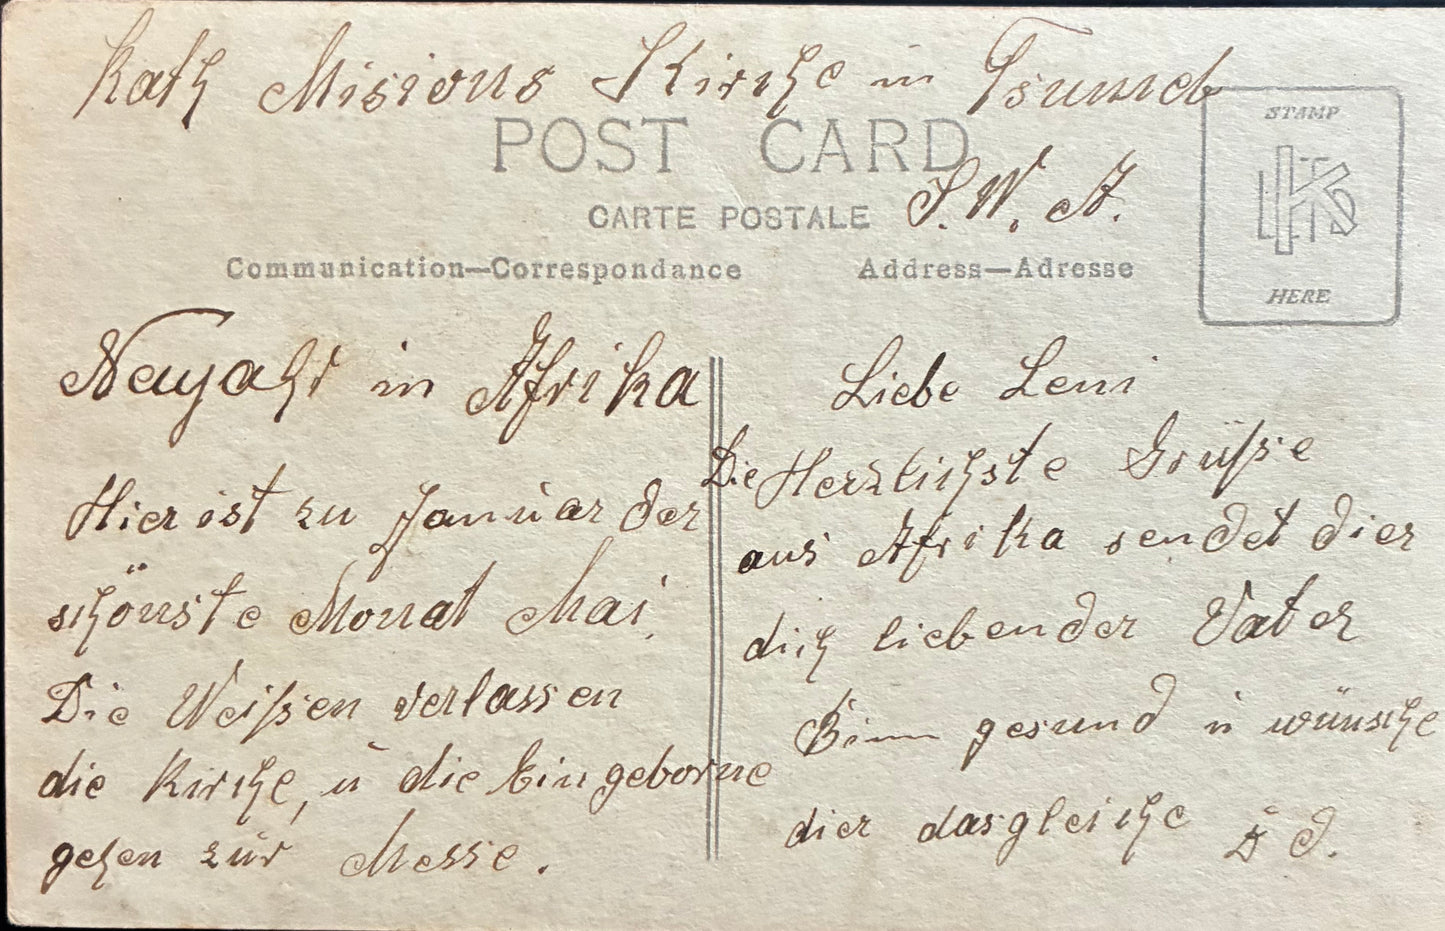 Kath Misions Kirche in Tsumeb
POST CARD
S. W. A.
CARTE POSTALE
Communication—Correspondance
Address—Adresse
STAMP
HERE
Neujahr in Afrika
Hier ist zu Januar der
schönste Monat Mai.
Die Weißen verlassen
die Kirche, u die Eingeborne
gehen zur Messe.
Liebe Leni
Die Herzlichste Grüße
aus Afrika sendet dier
dich liebender Vater
Binn gesund u wünsche
dier dasgleiche